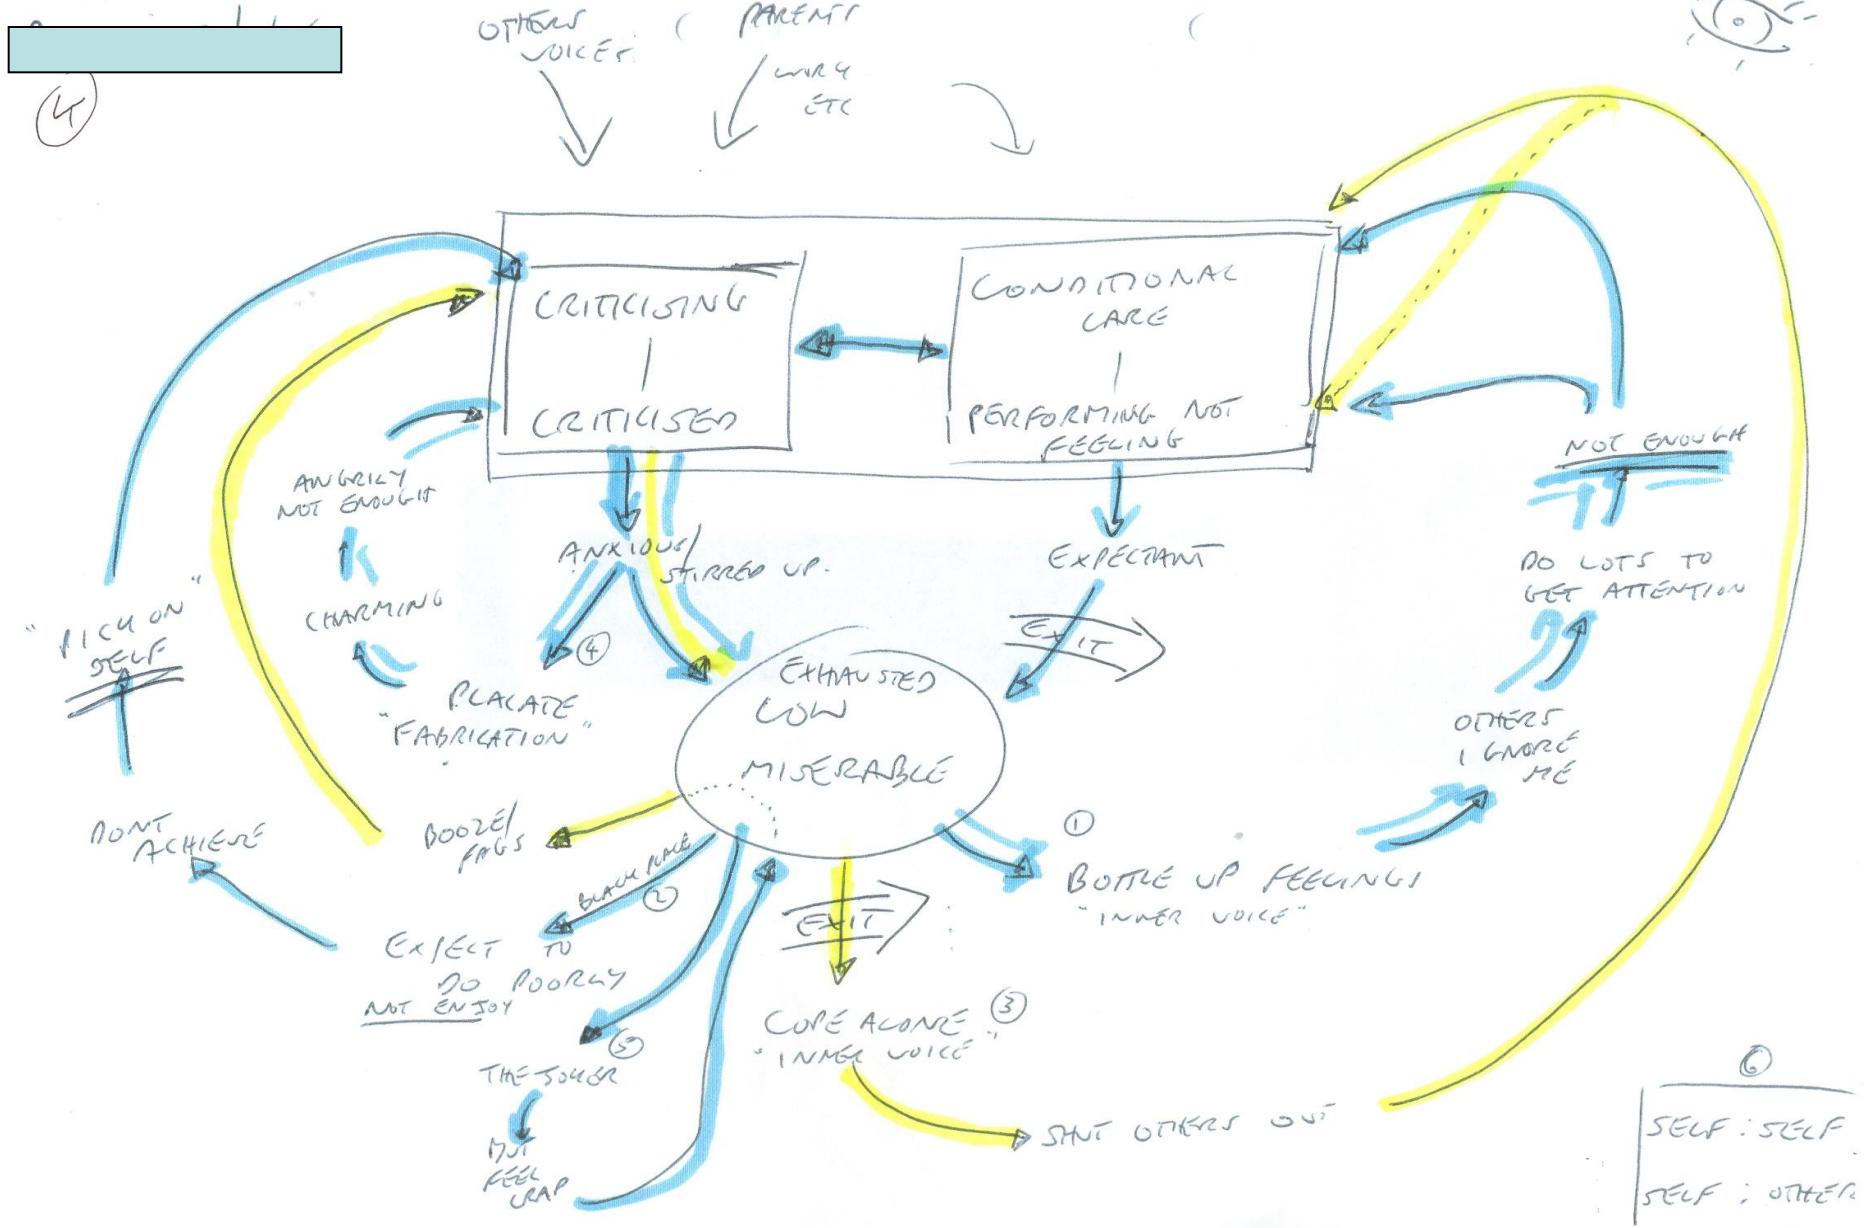 OTHERS
VOICES
PARENTS
WORK
ETC
4
CRITICISING
CRITICISED
CONDITIONAL
CARE
PERFORMING NOT
FEELING
NOT ENOUGH
ANGRILY
NOT ENOUGH
ANXIOUS/
STIRRED UP.
EXPECTANT
DO LOTS TO
GET ATTENTION
CHARMING
"PICK ON"
SELF
4
EXIT
PLACATE
"FABRICATION"
EXHAUSTED
LOW
MISERABLE
OTHERS
IGNORE
ME
DONT
ACHIEVE
BOOZE/
FAGS
1
BOTTLE UP FEELINGS
"INNER VOICE"
BLACK PLACE
2
EXIT
EXPECT TO
DO POORLY
NOT ENJOY
COPE ALONE
"INNER VOICE"
3
5
THE JOKER
BUT
FEEL
CRAP
SHUT OTHERS OUT
6
SELF : SELF
SELF : OTHER